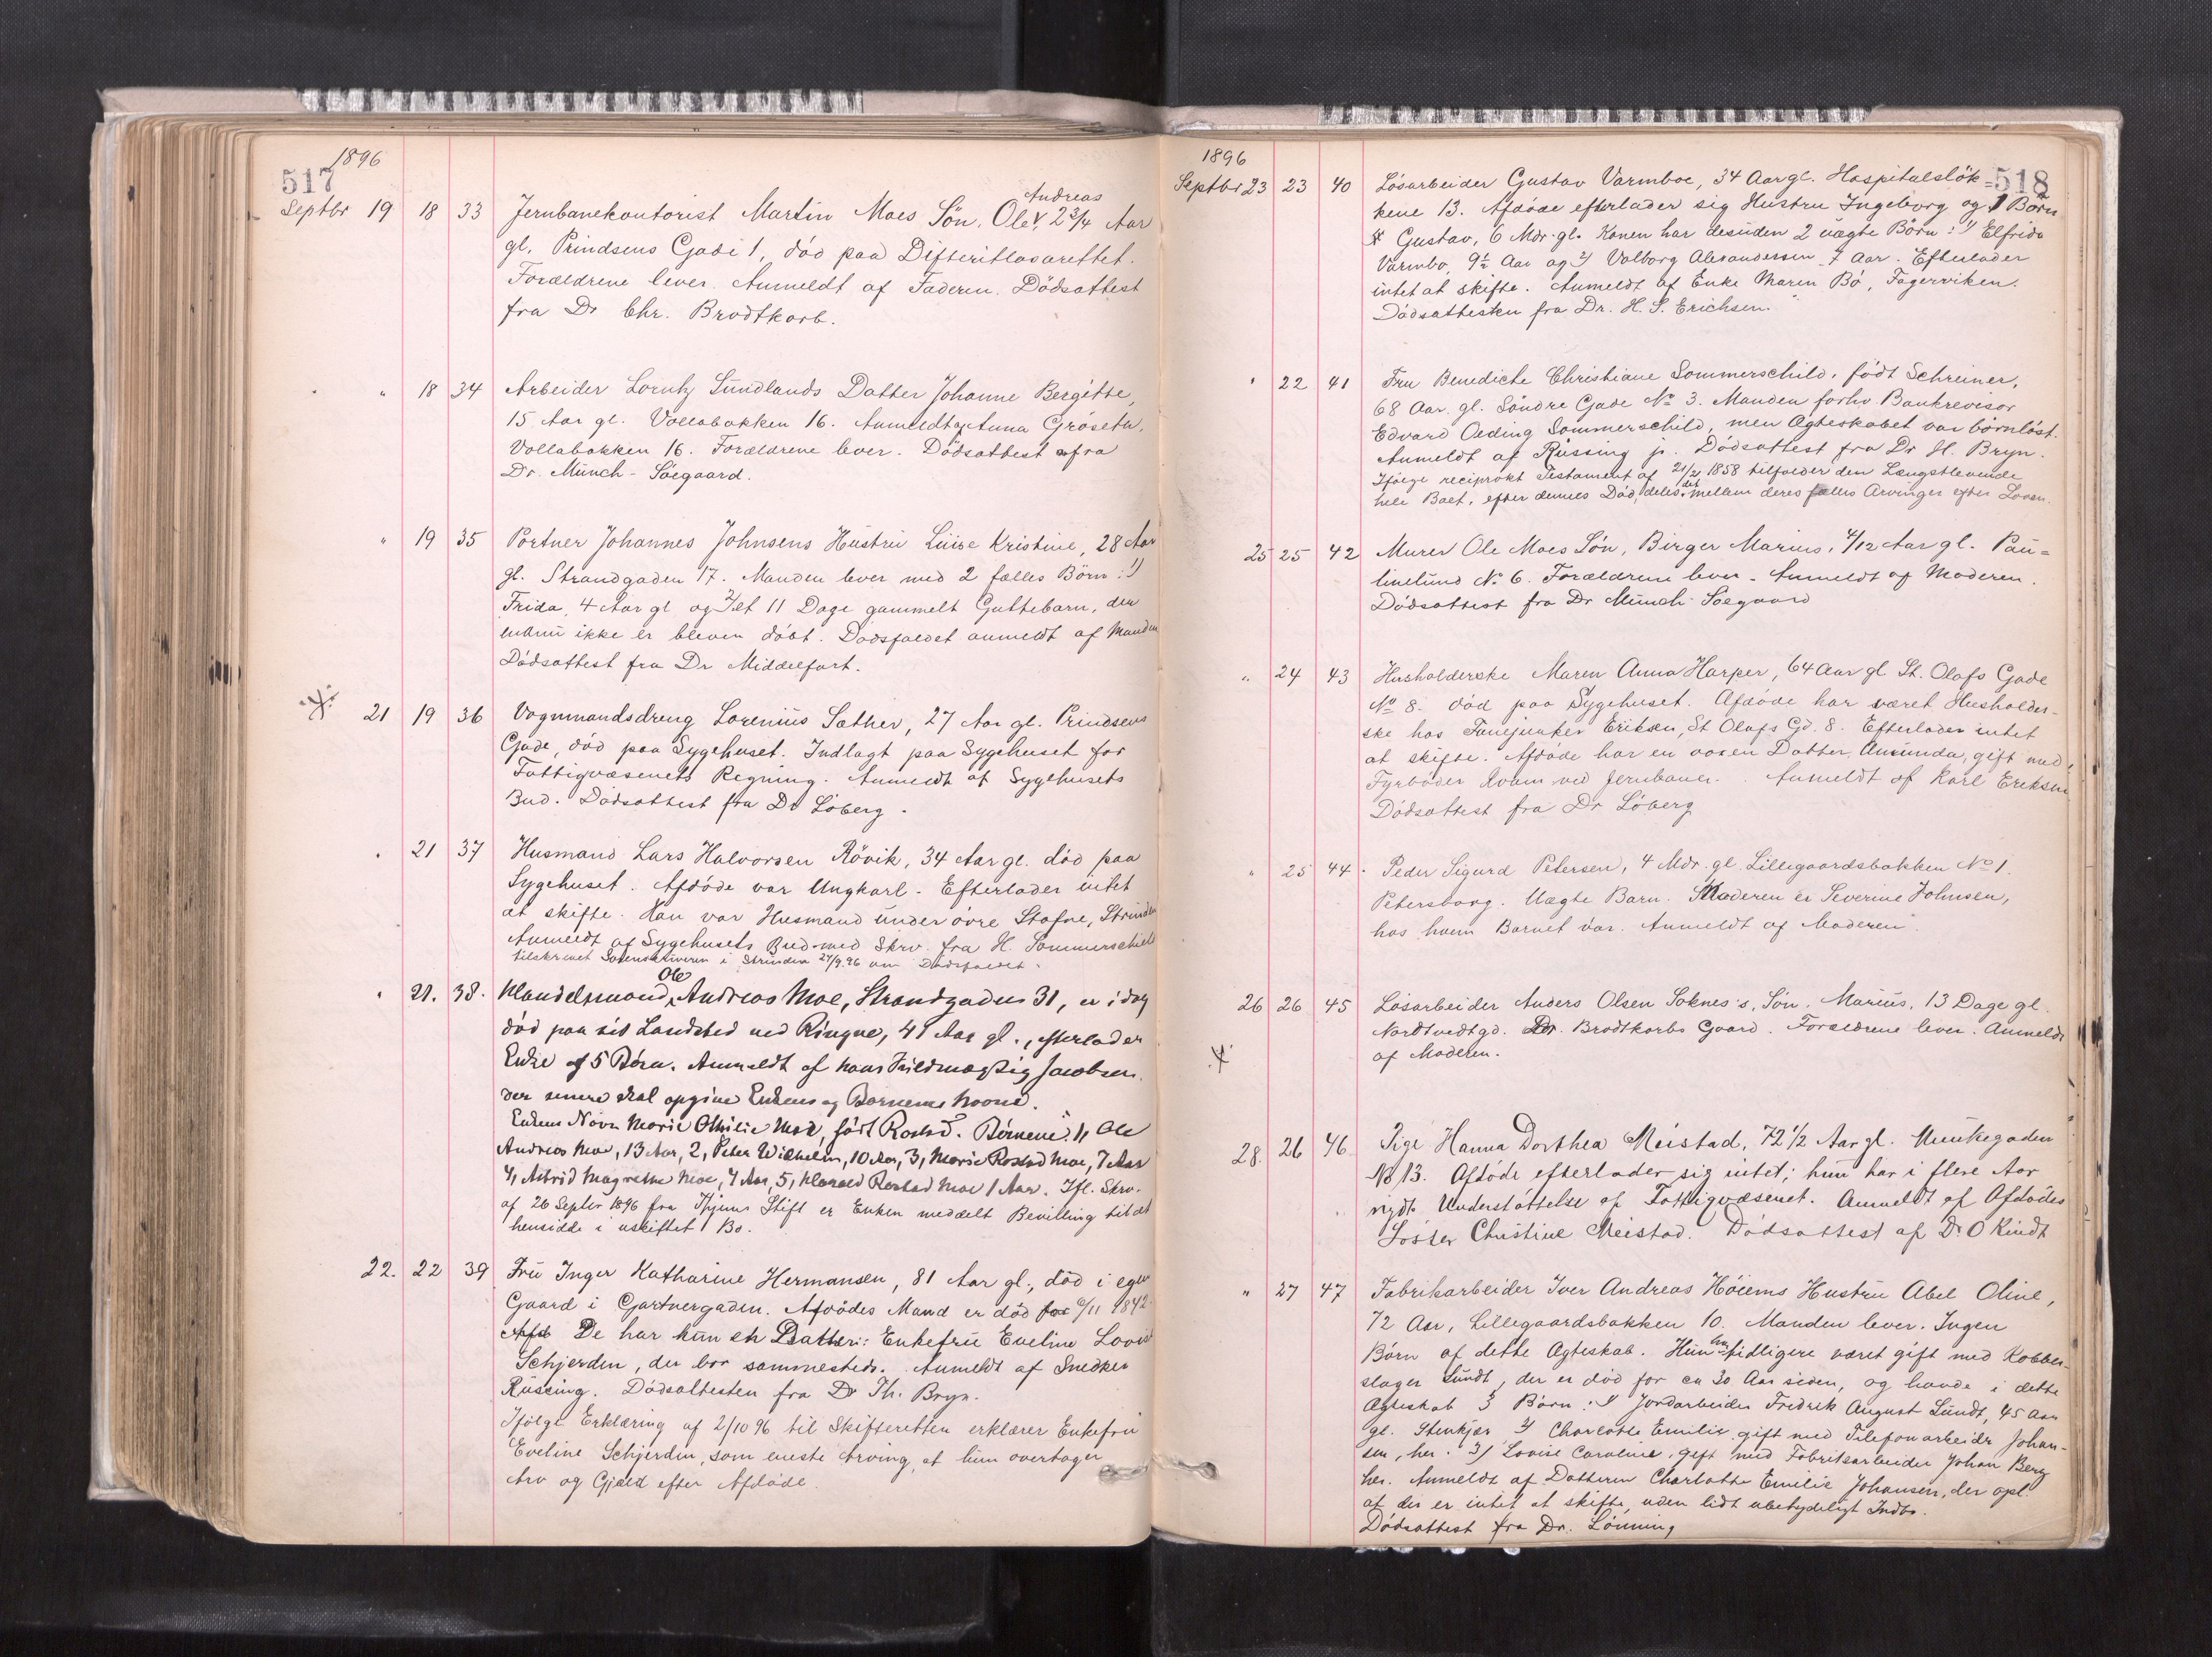 517
1896
Septbr 19 18 33 Jernbanekontorist Martin Moes Sön, Ole Andreas, 2 3/4 Aar
gl. Prindsens Gade 1, död paa Difteritlasarettet.
Forældrene lever. Anmeldt af Faderen. Dödsattest
fra Dr Chr. Brodtkorb.
" 18 34 Arbeider Lorntz Sundlands Datter Johanne Bergitte,
15 Aar gl. Vollabakken 16. Anmeldt af Anna Gröseth,
Vollabakken 16. Forældrene lever. Dödsattest fra
Dr. Münch-Söegaard.
" 19 35 Portner Johannes Johnsens Hustru Luise Kristine, 28 Aar
gl. Strandgaden 17. Manden lever med 2 fælles Börn: 1)
Frida, 4 Aar gl og 2) et 11 Dage gammelt Guttebarn, der
endnu ikke er bleven döbt. Dödsfaldet anmeldt af Manden
Dödsattest fra Dr Middelfart.
21 19 36 Vognmandsdreng Lorenius Sæther, 27 Aar gl. Prindsens
Gade, död paa Sygehuset. Indlagt paa Sygehuset for
Fattigvæsenets Regning. Anmeldt af Sygehusets
Bud. Dödsattest fra Dr Löberg.
" 21 37 Husmand Lars Halvorsen Rövik, 34 Aar gl. död paa
Sygehuset. Afdöde var Ungkarl. Efterlader intet
at skifte. Han var Husmand under övre Stafne, Strinden
Anmeldt af Sygehusets Bud med Skrv. fra H. Sommerschield
tilskrevet Sorenskriveren i Strinden 24/9.96 om Dödsfaldet.
" 21. 38. Handelsmand Ole Andreas Moe, Strandgaden 31, er idag
död paa sit Landsted ved Ringve, 41 Aar gl., efterlader
Enke og 5 Börn. Anmeldt af Hans Fuldmægtig Jacobsen
der senere skal opgive Enkens og Börnenes Navne.
Enkens Navn Marie Othilie Moe, född Rostad. Börnene: 1, Ole
Andreas Moe, 13 Aar, 2, Peter Wilhelm, 10 Aar, 3, Marie Rostad Moe, 7 Aar
4, Astrid Magrethe Moe, 4 Aar, 5, Harald Rostad Moe 1 Aar. Ifl. Skrv.
af 26 Septbr 1896 fra Thjems Stift er Enken meddelt Bevilling til at
hensidde i uskiftet Bo.
22. 22 39 Fru Inger Katharine Hermansen, 81 Aar gl., död i egen
Gaard i Gartnergaden. Afdödes Mand er död for 6/11 1842.
Afd De har kun en Datter: Enkefru Eveline Lovise
Schjerden, der bor sammesteds. Anmeldt af Snedker
Rüssing. Dödsattesten fra Dr Th. Bryn.
Ifölge Erklæring af 2/10 96 til Skifteretten erklærer Enkefru
Eveline Schjerden, som eneste Arving, at hun overtager
Arv og Gjæld efter Afdöde.
518
1896
Septbr 23 23 40 Lösarbeider Gustav Varmboe, 34 Aar gl. Hospitalslök=
kene 13. Afdöde efterlader sig Hustru Ingeborg og 1 Börn
Gustav, 6 Mdr. gl. Konen har desuden 2 uægte Börn: 1) Elfrida
Varmbo, 9 1/2 Aar og 2) Valborg Alexandersen 7 Aar. Efterlader
intet at skifte. Anmeldt af Enke Maren Bö, Fagerviken.
Dödsattesten fra Dr. H. S. Erichsen.
" 22 41 Fru Benedicte Christiane Sommerschild, född Schreiner,
68 Aar. gl. Söndre Gade No 3. Manden forhv Bankrevisor
Edvard Oeding Sommerschild, men Ægteskabet var börnlöst.
Anmeldt af Rüssing jr. Dödsattest fra Dr H. Bryn.
Ifölge reciprokt Testament af 21/2 1858 tilfalder den Længstlevende
hele Boet, efter dennes Död, deles det mellem deres fælles Arvinger efter Loven.
25 25 42 Murer Ole Moes Sön, Birger Marius, 4/12 Aar gl. Pau=
linelund No 6. Forældrene lever. Anmeldt af Moderen.
Dödsattest fra Dr Münch Söegaard
" 24 43 Husholderske Maren Anna Harper, 64 Aar gl St. Olafs Gade
No 8. död paa Sygehuset. Afdöde har været Husholder-
ske hos Eriksen, St Olafs Gd. 8. Efterlader intet
at skifte. Afdöde har en voxen Datter, Amunda, gift med
Fyrböder Kvam ved Jernbanen. Anmeldt af Karl Eriksen
Dödsattest fra Dr Löberg
" 25 44. Peder Sigurd Petersen, 4 Mdr. gl. Lillegaardsbakken No 1.
Petersborg. Uægte Barn. Moderen er Severine Johnsen,
hos hvem Barnet var. Anmeldt af Moderen.
26 26 45 Lösarbeider Anders Olsen Soknes's, Sön, Marius, 13 Dage gl.
Nordtvedtgd. Dr. Brodtkorbs Gaard. Forældrene lever. Anmeldt
af Moderen.
28. 26 46 Pige Hanna Dorthea Meistad, 72 1/2 Aar gl. Munkegaden
No 13. Afdöde efterlader sig intet; hun har i flere Aar
nydt Understöttelse af Fattigvæsenet. Anmeldt af Afdödes
Söster Christine Meistad. Dödsattest af Dr O Kindt
" 27 47 Fabrikarbeider Iver Andreas Höiems Hustru Abel Oline,
72 Aar, Lillegaardsbakken 10. Manden lever. Ingen
Börn af dette Ægteskab. Hun har tidligere været gift med Kobber-
slager Lundt, der er död for ca 30 Aar siden, og havde i dette
Ægteskab 3 Börn: 1) Jordarbeider Fredrik August Lundt, 45 Aar
gl. Stenkjær 2) Charlotte Emilie, gift med Telefonarbeider Johan-
sen, her. 3) Lovise Caroline, gift med Fabrikarbeider Johan Berg
her. Anmeldt af Datteren Charlotte Emilie Johansen, der opl.
at der er intet at skifte, uden lidt ubetydeligt Indbo.
Dödsattest fra Dr. Lönning